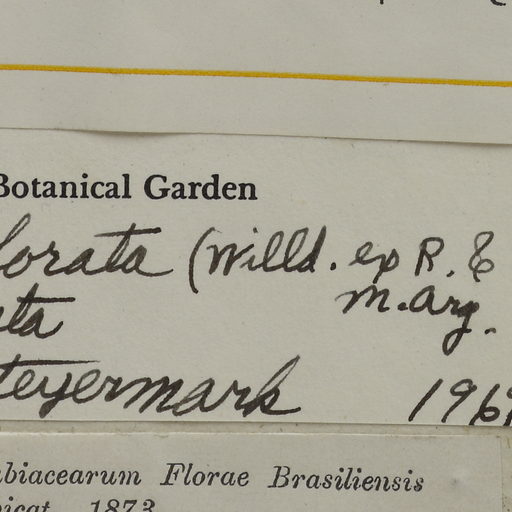 Botanical Garden
lorata (Willd. ex R. &
ta M. Arg.
teyermark 1969
biacearum Florae Brasiliensis
icat 1873